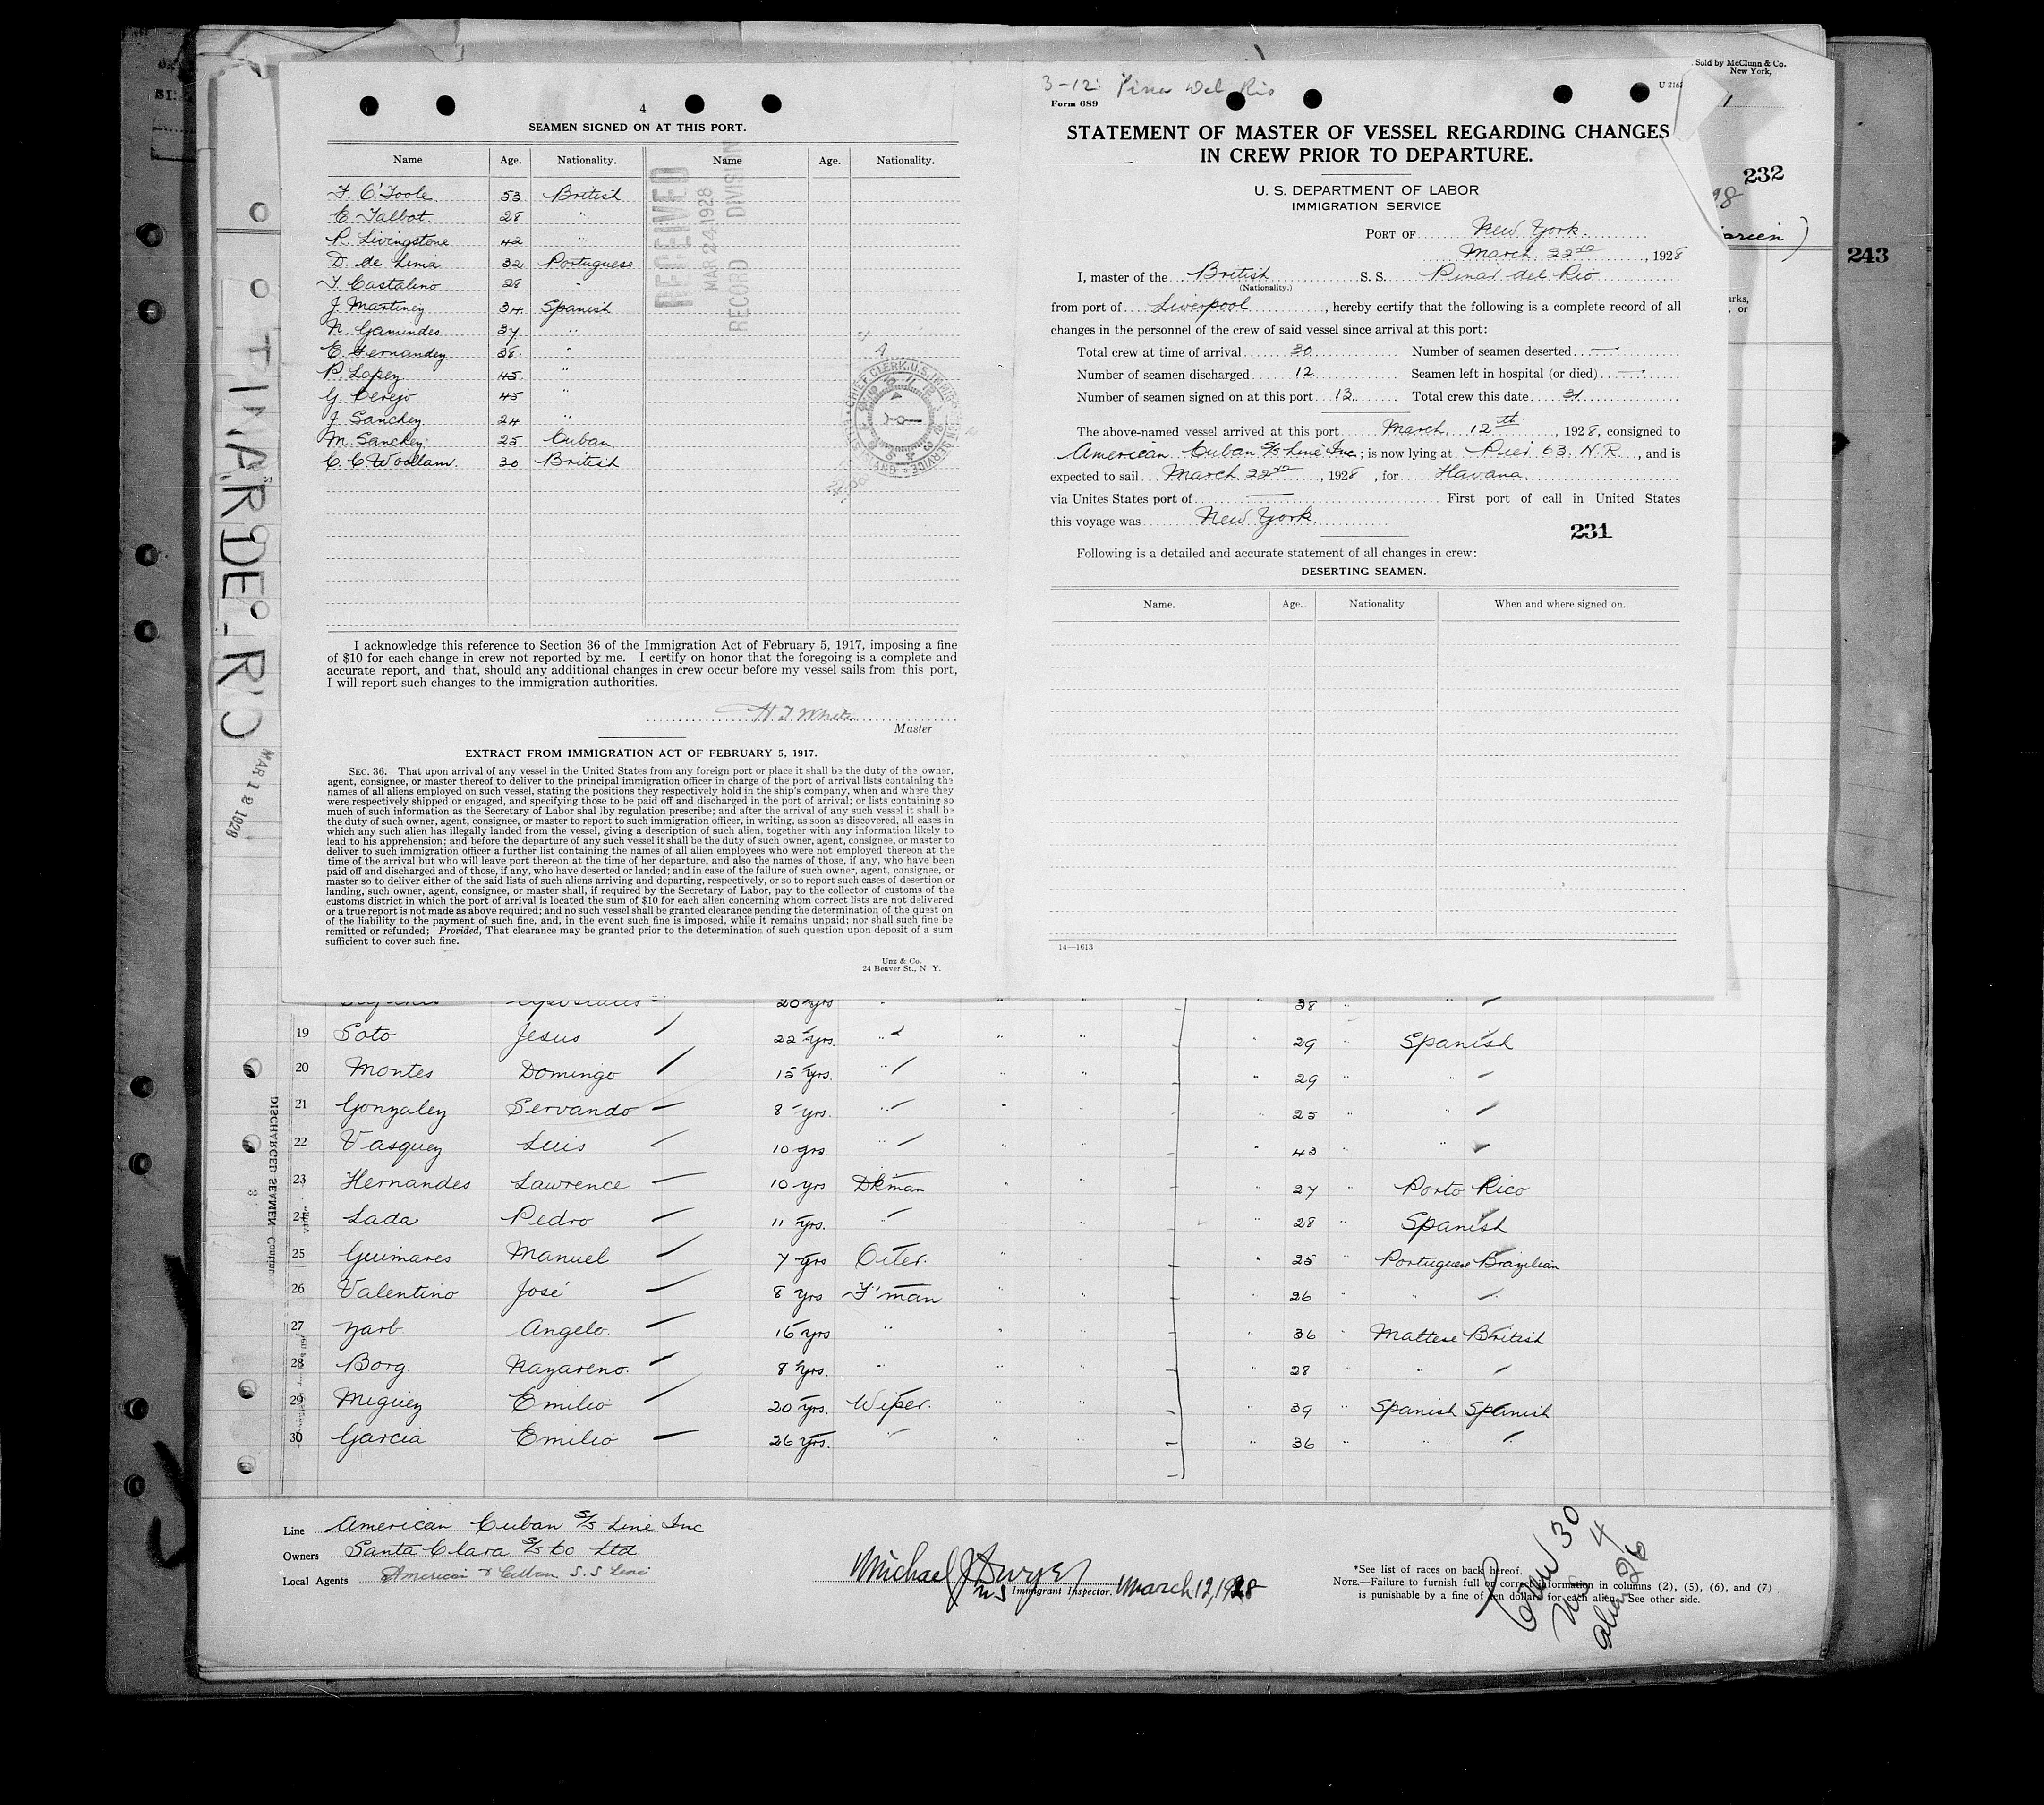 Sold by McClunn & Co.
New York.
232
243
4
SEAMEN SIGNED ON AT THIS PORT.
Name Age. Nationality. Name Age. Nationality.
F. O'Toole 53 British
E. Talbot. 28 "
R. Livingstone 42 "
D. de Lima 32 Portuguese
T. Castalino 28 "
J. Martinez 34 Spanish
N. Gamundes 37 "
E. Fernandez 38. "
P. Lopez 45. "
G. Cerejo 45 "
J. Sanchez 24 "
M. Sanchez 25 Cuban
C. C. Woollam. 30 British
RECEIVED
MAR 24 1928
RECORD DIVISION
I acknowledge this reference to Section 36 of the Immigration Act of February 5, 1917, imposing a fine
of $10 for each change in crew not reported by me. I certify on honor that the foregoing is a complete and
accurate report, and that, should any additional changes in crew occur before my vessel sails from this port,
I will report such changes to the immigration authorities.
H. J. White
Master
EXTRACT FROM IMMIGRATION ACT OF FEBRUARY 5, 1917.
SEC. 36. That upon arrival of any vessel in the United States from any foreign port or place it shall be the duty of the owner,
agent, consignee, or master thereof to deliver to the principal immigration officer in charge of the port of arrival lists containing the
names of all aliens employed on such vessel, stating the positions they respectively hold in the ship's company, when and where they
were respectively shipped or engaged, and specifying those to be paid off and discharged in the port of arrival; or lists containing so
much of such information as the Secretary of Labor shal lby regulation prescribe; and after the arrival of any such vessel it shall be
the duty of such owner, agent, consignee, or master to report to such immigration officer, in writing, as soon as discovered, all cases in
which any such alien has illegally landed from the vessel, giving a description of such alien, together with any information likely to
lead to his apprehension; and before the departure of any such vessel it shall be the duty of such owner, agent, consignee, or master to
deliver to such immigration officer a further list containing the names of all alien employees who were not employed thereon at the
time of the arrival but who will leave port thereon at the time of her departure, and also the names of those, if any, who have been
paid off and discharged and of those, if any, who have deserted or landed; and in case of the failure of such owner, agent, consignee, or
master so to deliver either of the said lists of such aliens arriving and departing, respectively, or so to report such cases of desertion or
landing, such owner, agent, consignee, or master shall, if required by the Secretary of Labor, pay to the collector of customs of the
customs district in which the port of arrival is located the sum of $10 for each alien concerning whom correct lists are not delivered
or a true report is not made as above required; and no such vessel shall be granted clearance pending the determination of the quest on
of the liability to the payment of such fine, and, in the event such fine is imposed, while it remains unpaid; nor shall such fine be
remitted or refunded; Provided, That clearance may be granted prior to the determination of such question upon deposit of a sum
sufficient to cover such fine.
Unz & Co.
24 Beaver St., N Y.
3-12: Pinar Del Rio
Form 689
STATEMENT OF MASTER OF VESSEL REGARDING CHANGES
IN CREW PRIOR TO DEPARTURE.
U. S. DEPARTMENT OF LABOR
IMMIGRATION SERVICE
PORT OF New York.
March 22nd, 1928
I, master of the British S. S. Pinar del Rio
(Nationality.)
from port of Liverpool, hereby certify that the following is a complete record of all
changes in the personnel of the crew of said vessel since arrival at this port:
Total crew at time of arrival 30 Number of seamen deserted —
Number of seamen discharged 12 Seamen left in hospital (or died) —
Number of seamen signed on at this port 13 Total crew this date 31
The above-named vessel arrived at this port March 12th, 1928, consigned to
American Cuban S/S Line Inc; is now lying at Pier 63. N.R., and is
expected to sail March 22nd, 1928, for Havana
via Unites States port of — First port of call in United States
this voyage was New York.
231
Following is a detailed and accurate statement of all changes in crew:
DESERTING SEAMEN.
Name. Age. Nationality When and where signed on.
14—1613
PINAR DEL RIO
MAR 12 1928
DISCHARGED SEAMEN
20 yrs " 38 "
19 Soto Jesus 22 yrs. " 29 " Spanish
20 Montes Domingo 15 yrs. " 29 " "
21 Gonzalez Servando 8 yrs. " 25 " "
22 Vasquez Luis 10 yrs. " 43 " "
23 Hernandes Lawrence 10 yrs Dkman 27 Porto Rico
24 Lada Pedro 11 yrs. " 28 " Spanish
25 Guimares Manuel 7 yrs Oiler. 25 " Portuguese Brazilian
26 Valentino José 8 yrs F'man 26 " "
27 Zarb Angelo. 15 yrs " 36 " Maltese British
28 Borg. Nazareno. 8 yrs. " 28 " "
29 Miguez Emilio 20 yrs. Wiper. 39 " Spanish Spanish
30 Garcia Emilio 26 yrs. " 36 " " "
Line American Cuban S/S Line Inc
Owners Santa Clara S/S Co Ltd.
Local Agents American & Cuban S.S Line
Michael J Dwyer
US Immigrant Inspector. March 12, 1928
*See list of races on back hereof.
NOTE.—Failure to furnish full or correct information in columns (2), (5), (6), and (7)
is punishable by a fine of ten dollars for each alien. See other side.
Crew 30
US 4
alien 26